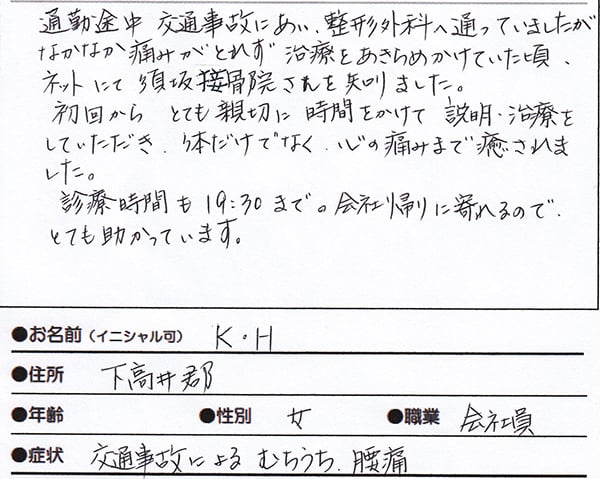 通勤途中 交通事故にあい、整形外科へ通っていましたが
なかなか痛みがとれず 治療をあきらめかけていた頃、
ネットにて須坂接骨院さんを知りました。
初回から とても親切に 時間をかけて 説明・治療を
していただき、体だけでなく、心の痛みまで癒されま
した。
診療時間も 19:30まで。会社帰りに寄れるので、
とても助かっています。
●お名前（イニシャル可） K・H
●住所 下高井郡
●年齢 ●性別 女 ●職業 会社員
●症状 交通事故による むちうち、腰痛